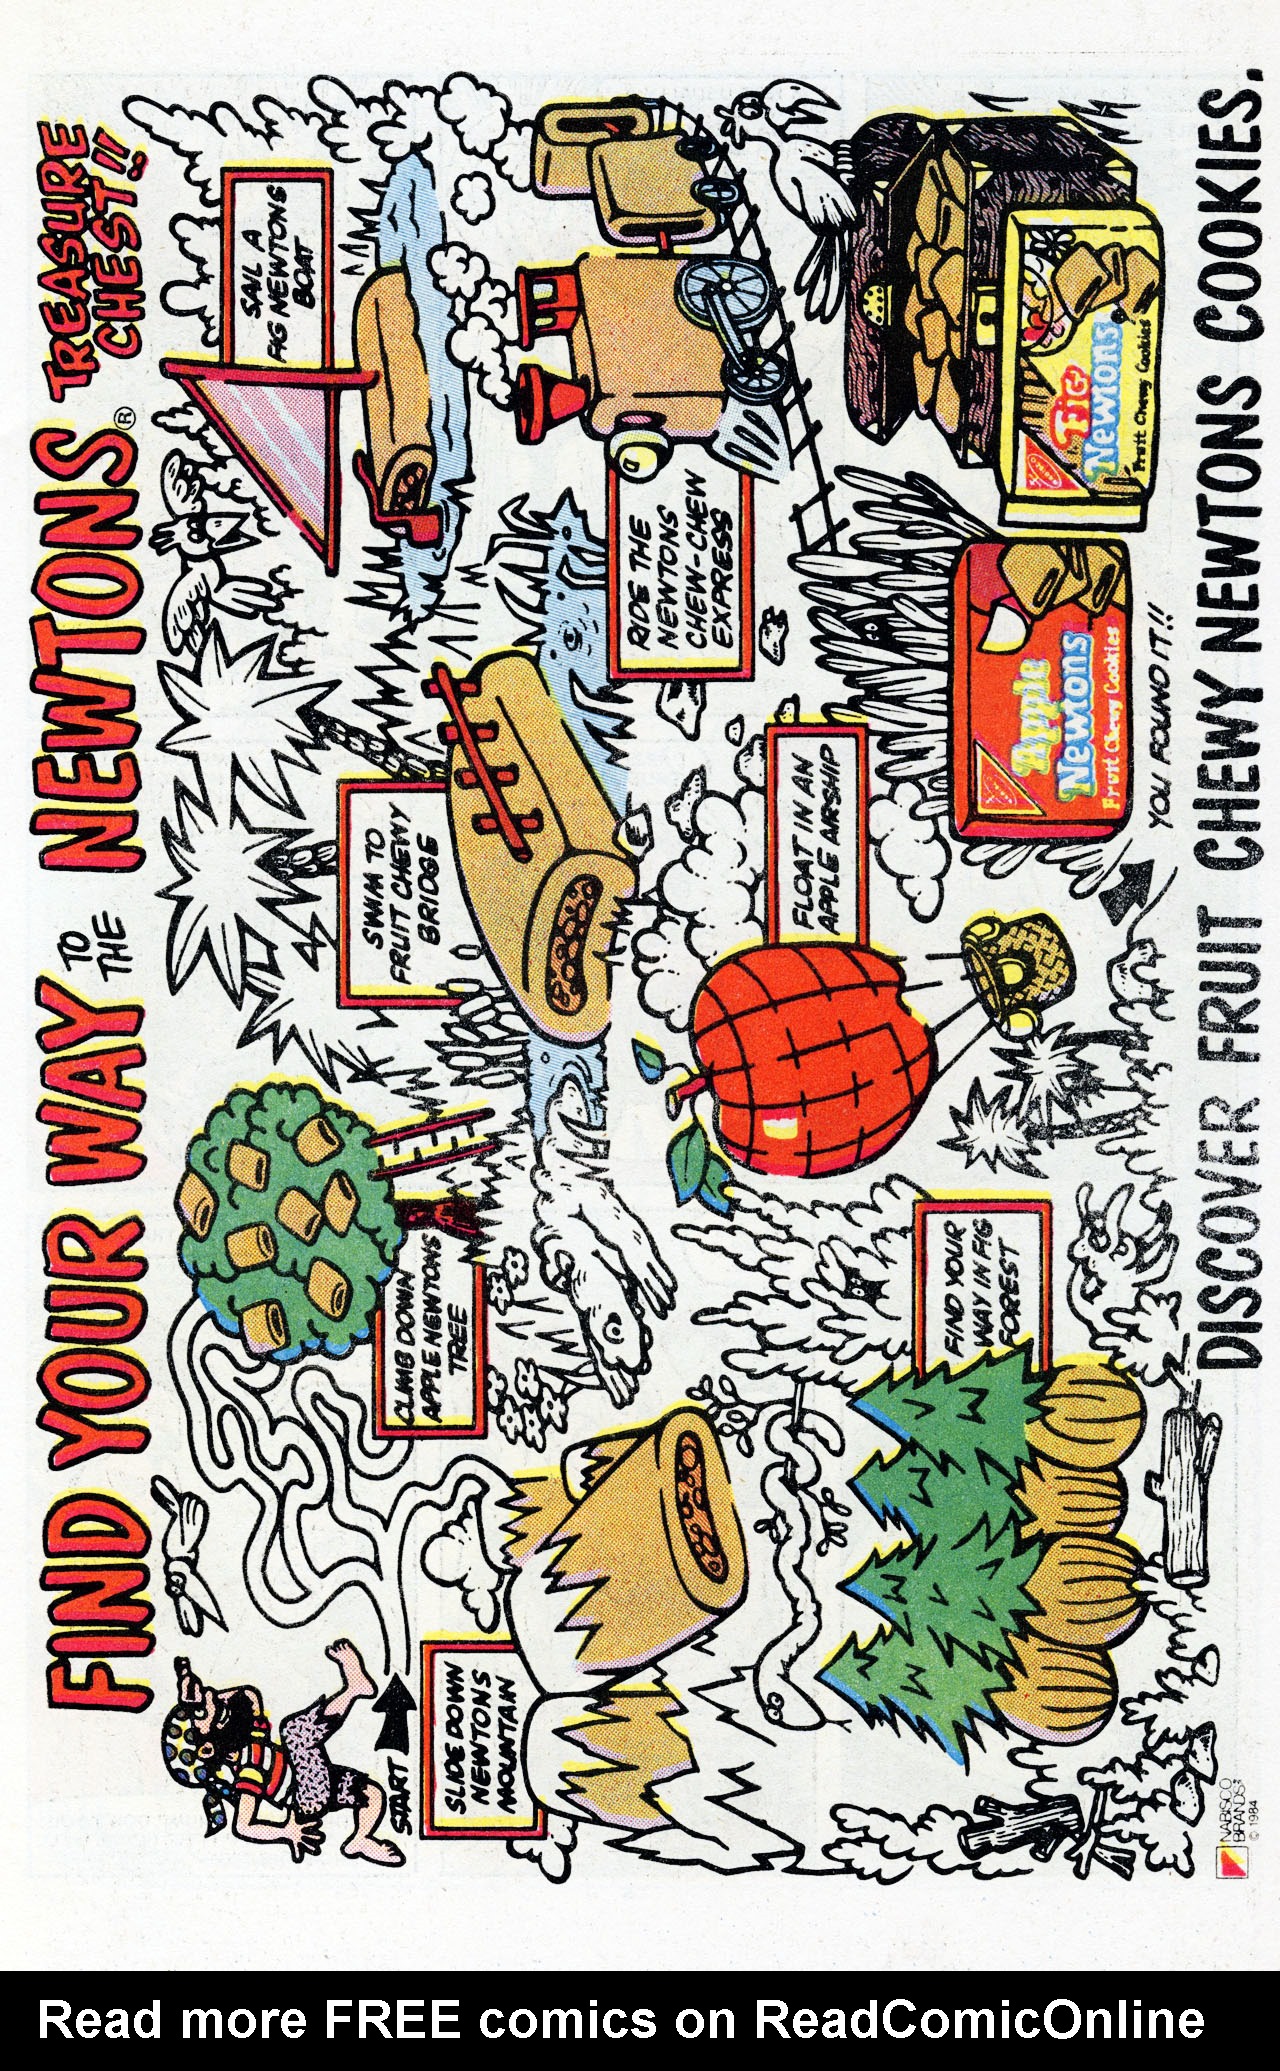 FIND YOUR WAY TO THE NEWTONS® TREASURE CHEST!!
START
CLIMB DOWN
APPLE NEWTONS
TREE
SWIM TO
FRUIT CHEWY
BRIDGE
SAIL A
FIG NEWTONS
BOAT
SLIDE DOWN
NEWTONS
MOUNTAIN
RIDE THE
NEWTONS
CHEW-CHEW
EXPRESS
FLOAT IN AN
APPLE AIRSHIP
FIND YOUR
WAY IN FIG
FOREST
Apple
Newtons
Fruit Chewy Cookies
Fig
Newtons®
Fruit Chewy Cookies
YOU FOUND IT!!
NABISCO
BRANDS
© 1984
DISCOVER FRUIT CHEWY NEWTONS COOKIES.
Read more FREE comics on ReadComicOnline